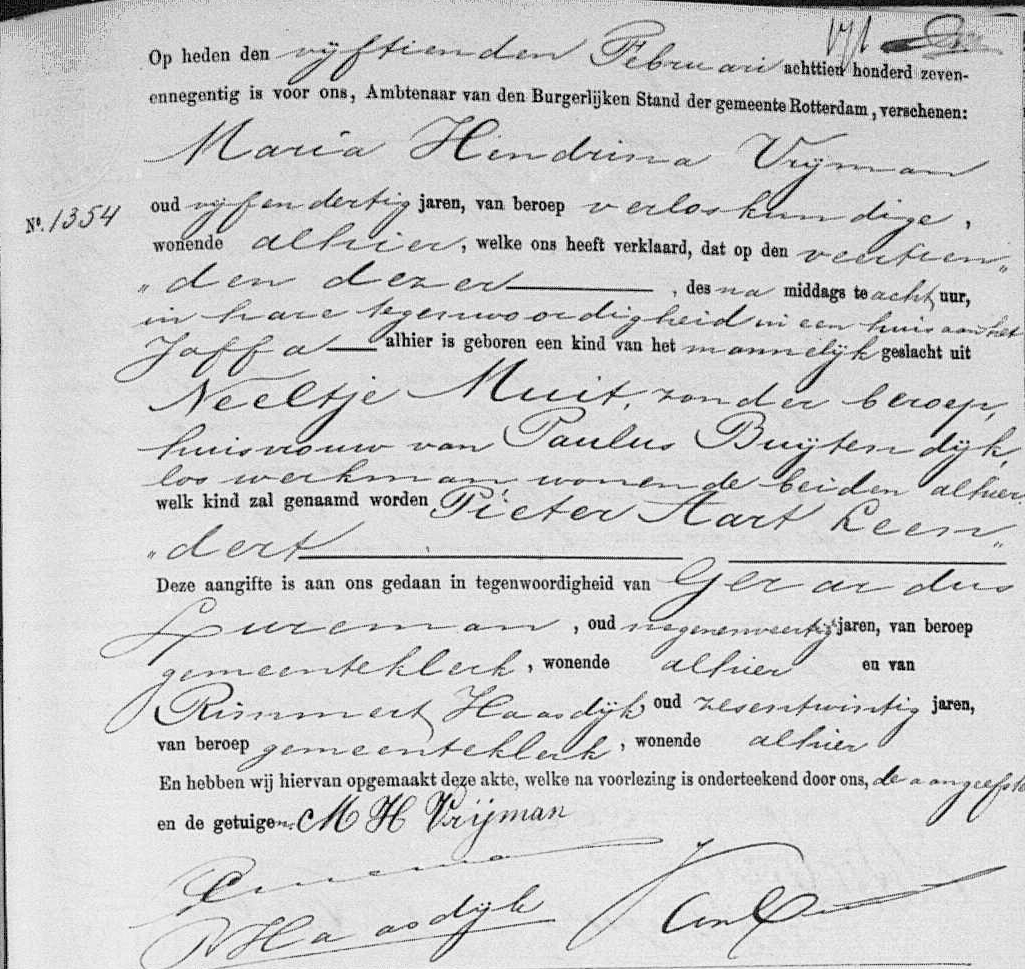 Op heden den vijftienden Februari achttien honderd zeven-
ennegentig is voor ons, Ambtenaar van den Burgerlijken Stand der gemeente Rotterdam, verschenen:
Maria Hendrina Vrijman
No. 1354
oud vijfendertig jaren, van beroep verloskundige,
wonende alhier, welke ons heeft verklaard, dat op den veertien„
„den dezer, des na middags te acht uur,
in hare tegenwoordigheid in een huis aan het
Jaffa alhier is geboren een kind van het mannelijk geslacht uit
Neeltje Muit, zonder beroep,
huisvrouw van Paulus Buijtendijk,
los werkman wonende beiden alhier
welk kind zal genaamd worden Pieter Aart Leen„
„dert
Deze aangifte is aan ons gedaan in tegenwoordigheid van Gerardus
Lureman, oud negenenveertig jaren, van beroep
gemeenteklerk, wonende alhier en van
Rimmert Haasdijk oud zesentwintig jaren,
van beroep gemeenteklerk, wonende alhier
En hebben wij hiervan opgemaakt deze akte, welke na voorlezing is onderteekend door ons, de aangeefster
en de getuigen. M H Vrijman
R Haasdijk